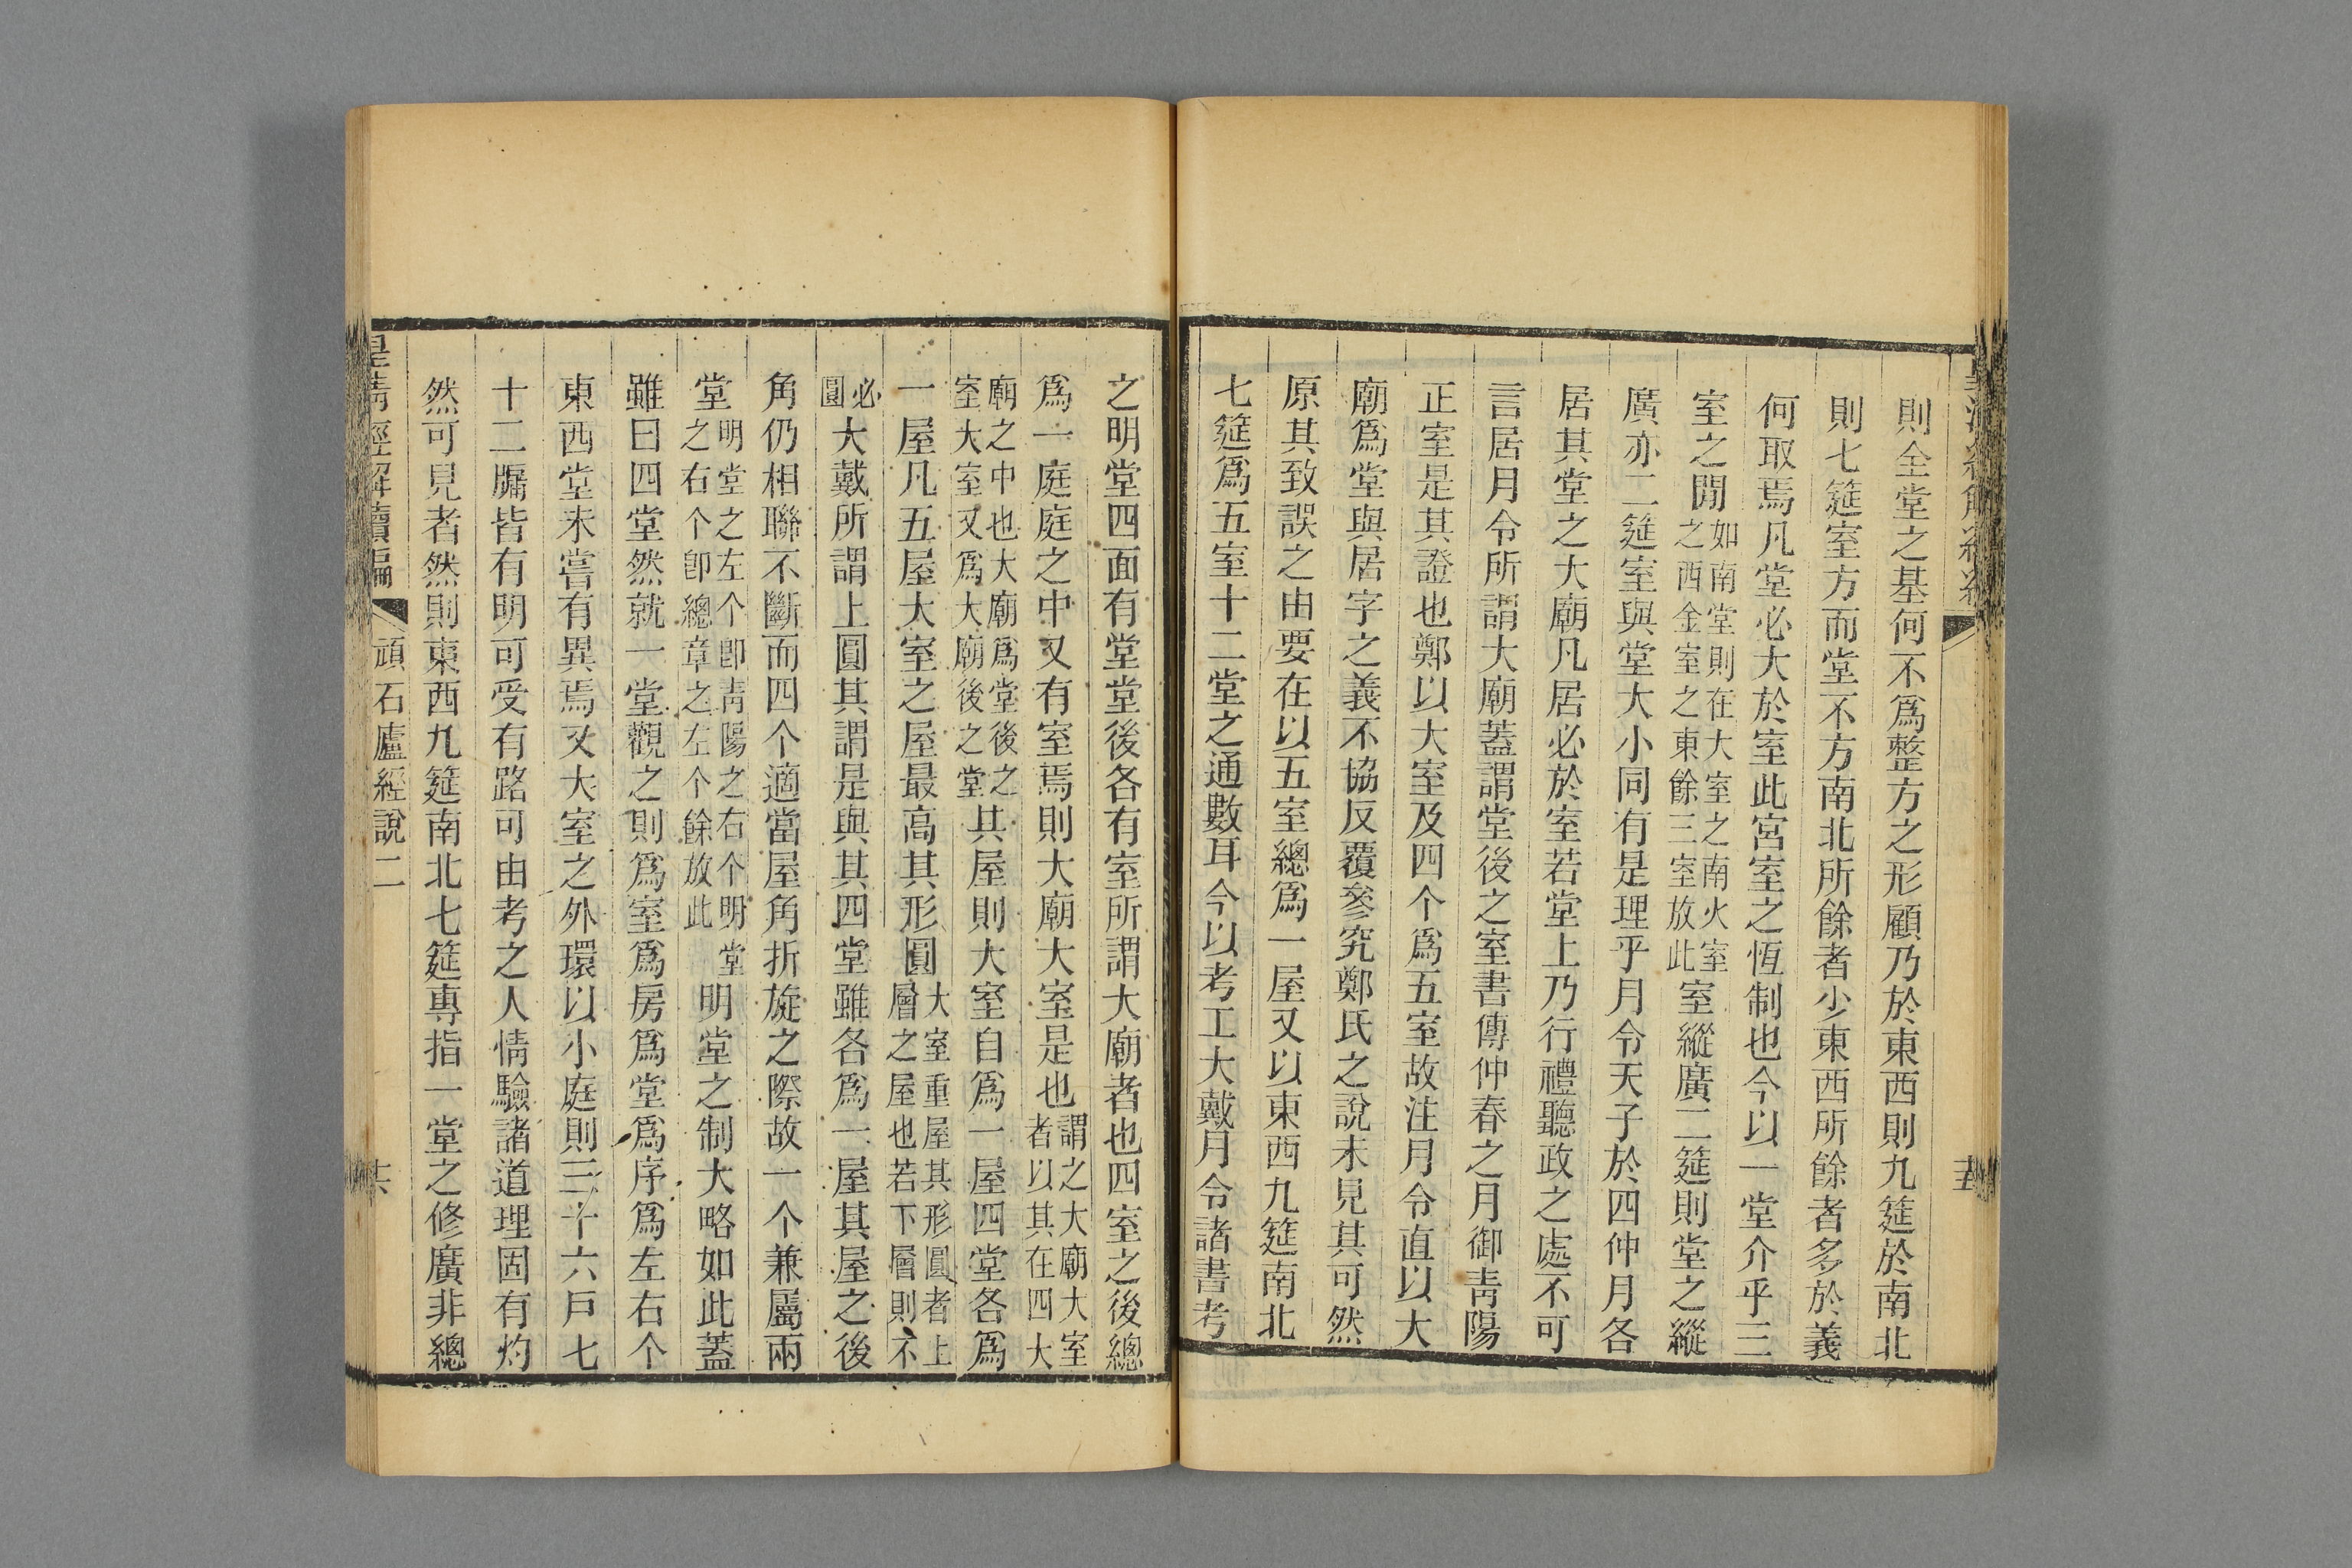 則全堂之基何不爲整方之形顧乃於東西則九筵於南北
則七筵室方而堂不方南北所餘者少東西所餘者多於義
何取焉凡堂必大於室此宮室之恆制也今以一堂介乎三
室之閒如南堂則在大室之南火室之西金室之東餘三室放此室縱廣二筵則堂之縱
廣亦二筵室與堂大小同有是理乎月令天子於四仲月各
居其堂之大廟凡居必於室若堂上乃行禮聽政之處不可
言居月令所謂大廟蓋謂堂後之室書傳仲春之月御靑陽
正室是其證也鄭以大室及四个爲五室故注月令直以大
廟爲堂與居字之義不協反覆參究鄭氏之說未見其可然
原其致誤之由要在以五室總爲一屋又以東西九筵南北
七筵爲五室十二堂之通數耳今以考工大戴月令諸書考
之明堂四面有堂堂後各有室所謂大廟者也四室之後總
爲一庭庭之中又有室焉則大廟大室是也謂之大廟大室者以其在四大
廟之中也大廟爲堂後之室大室又爲大廟後之堂其屋則大室自爲一屋四堂各爲
一屋凡五屋大室之屋最高其形圓大室重屋其形圓者上層之屋也若下層則不
必圓大戴所謂上圓其謂是與其四堂雖各爲一屋其屋之後
角仍相聯不斷而四个適當屋角折旋之際故一个兼屬兩
堂明堂之左个卽靑陽之右个明堂之右个卽總章之左个餘放此明堂之制大略如此蓋
雖曰四堂然就一堂觀之則爲室爲房爲堂爲序爲左右个
東西堂未嘗有異焉又大室之外環以小庭則三十六戶七
十二牖皆有明可受有路可由考之人情驗諸道理固有灼
然可見者然則東西九筵南北七筵專指一堂之修廣非總
皇淸經解續編
頑石廬經說二